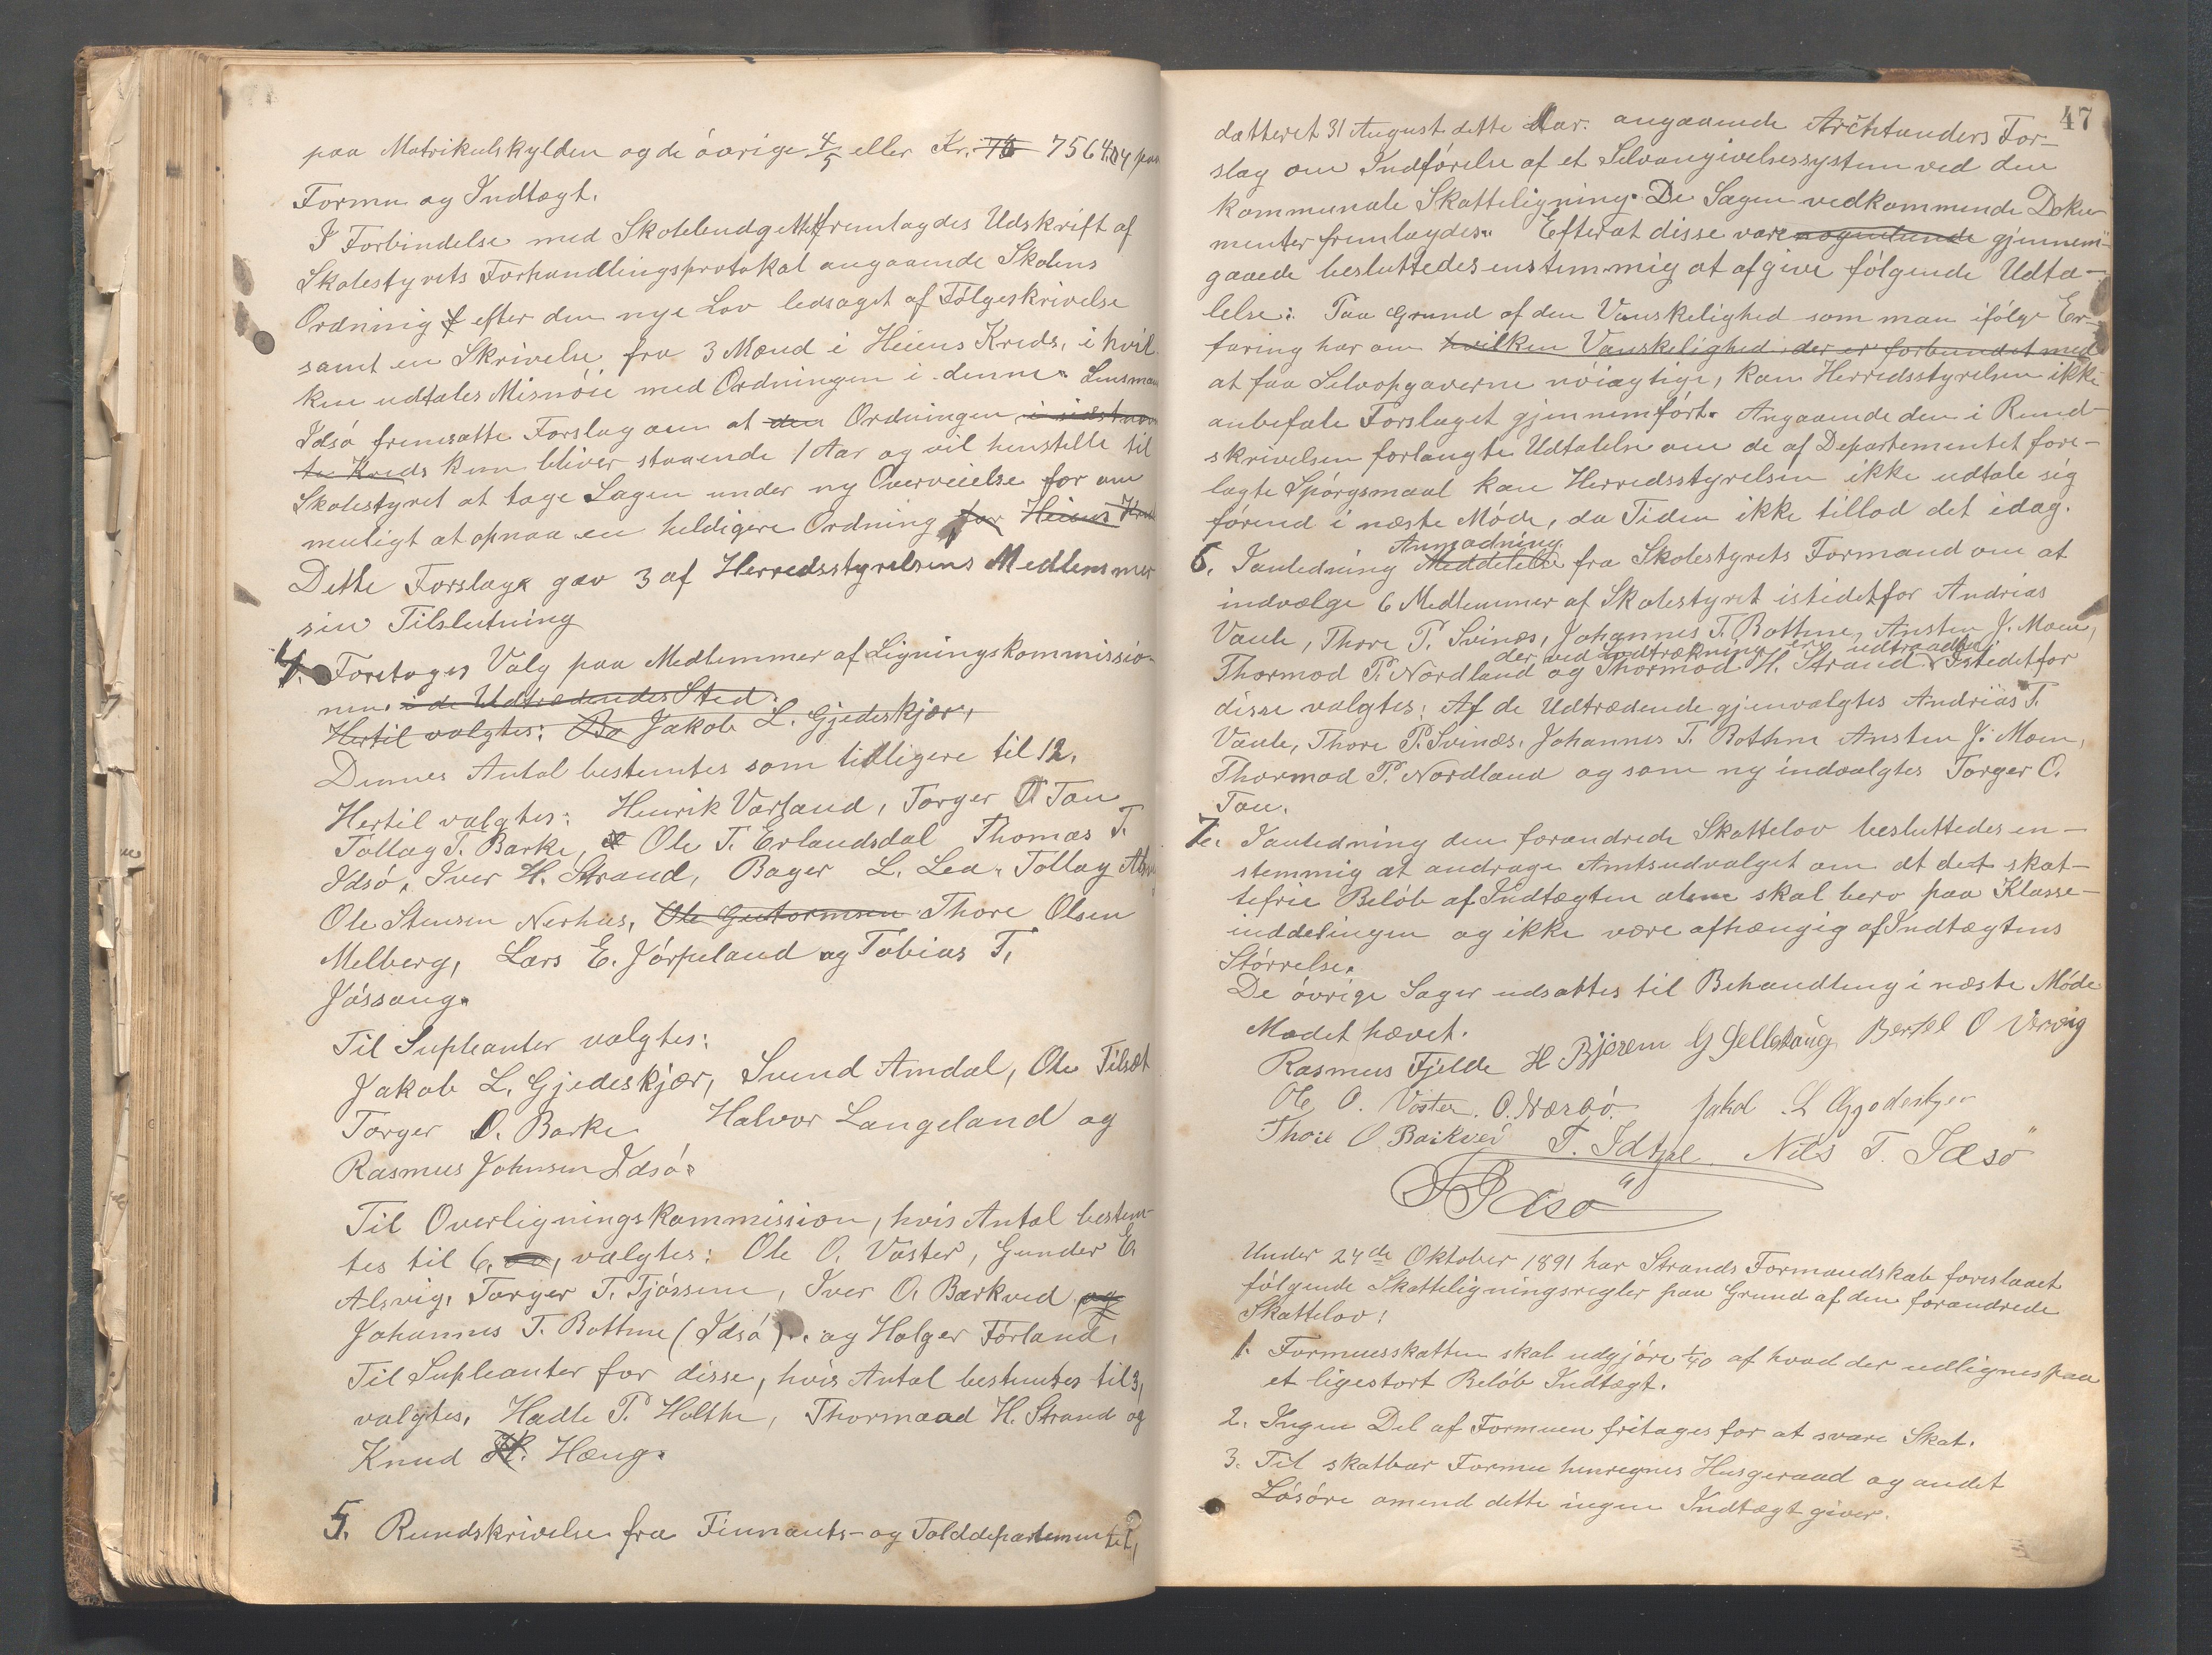 paa Matrikulskylden og de øvrige 4/5 eller Kr. 7564,04 paa
Formu og Indtægt.
I Forbindelse med Skolebudgettet fremlagdes Udskrift af
Skolestyrets Forhandlingsprotokol angaaende Skolens
Ordning efter den nye Lov ledsaget af Følgeskrivelse
samt en Skrivelse fra 3 Mænd i Heiens Kreds, i hvil-
ken udtales Misnøie med Ordningen i denne. Lensmand
Idsø fremsatte Forslag om at den Ordningen i sidstnævn
te Kreds kun bliver staaende 1 Aar og vil henstille til
Skolestyret at tage Sagen under ny Overveielse for om
muligt at opnaa en heldigere Ordning for Heiens Kreds
Dette Forslag gav 3 af Herredsstyrelsens Medlemmer
sin Tilslutning
4. Foretoges Valg paa Medlemmer af Ligningskommissio-
nen. i de Udtrædendes Sted.
Hertil valgtes: Bo Jakob L. Gjedeskjær,
Dennes Antal bestemtes som tidligere til 12.
Hertil valgtes: Henrik Varland, Torger O Tau
Tollag T. Barke, Ole T. Erlandsdal Thomas T.
Idsø, Iver H. Strand, Bager L. Lea, Tollag
Ole Stensen Nerhus, Ole Gutormsen Thore Olsen
Melberg, Lars E. Jørpeland og Tobias T.
Jøssang.
Til Supleanter valgtes:
Jakob L. Gjedeskjær, Svend Amdal, Ole Tilset
Torger O. Barke Halvor Langeland og
Rasmus Johnsen Idsø.
Til Overligningskommission, hvis Antal bestem-
tes til 6, valgtes: Ole O. Vøster, Gunder E.
Alsvig, Torger T. Tjøssem, Iver O. Barkved og
Johannes T. Bothne (Idsø), og Holger Førland.
Til Supleanter for disse, hvis Antal bestemtes til 3,
valgtes, Hadle P. Holthe, Thormod H. Strand og
Knud H. Hæng.
5. Rundskrivelse fra Finnants- og Tolddepartementet,
47
dætteret 31 August dette Aar. angaaende Arctanders For-
slag om Indførelse af et Selvangivelsessystem ved den
kommunale Skatteligning. De Sagen vedkommende Doku-
menter fremlagdes. Efterat disse vare nogenlunde gjennem-
gaaede besluttedes enstemmig at afgive følgende Udta-
lelse: Paa Grund af den Vanskelighed som man ifølge Er-
faring har om hvilken Vanskelighed der er forbundet med
at faa Selvopgaverne nøiagtige, kan Herredsstyrelsen ikke
anbefale Forslaget gjennemført. Angaaende den i Rund-
skrivelsen forlangte Udtalelse om de af Departementet fore-
lagte Spørgsmaal kan Herredsstyrelsen ikke udtale sig
førend i næste Møde, da Tiden ikke tillod det idag.
Anmodning
6. I anledning Meddelelse fra Skolestyrets Formand om at
indvælge 6 Medlemmer af Skolestyret istedetfor Andrias
Vaule, Thore P. Svinæs, Johannes T. Bothne, Ansten J. Moen,
der ved Lodtrækning ere udtraadte.
Thormod P. Nordland og Thormod H. Strand. Istedetfor
disse valgtes: Af de Udtrædende gjenvalgtes Andrias T.
Vaule, Thore P. Svinæs, Johannes T. Bothne Ansten J. Moen,
Thormod P. Nordland og som ny indvalgtes Torger O.
Tau.
7. I anledning den forandrede Skattelov besluttedes en-
stemmig at andrage Amtsudvalget om at det skat-
tefrie Beløb af Indtægten alene skal bero paa Klasse-
inddelingen og ikke være afhængig af Indtægtens
Størrelse.
De øvrige Sager udsattes til Behandling i næste Møde
Mødet hævet.
Rasmus Fjelde H Bjørem Bertel O Vervig
Ole O. Vøster. O. Nærbø. Jakob L Gjedeskjær
Thore O Barkved T. Idsøe Nils T. Idsø
Under 24de Oktober 1891 har Strands Formandskab foreslaaet
følgende Skatteligningsregler paa Grund af den forandrede
Skattelov:
1. Formuesskatten skal udgjøre 1/40 af hvad der udlignes paa
et ligestort Beløb Indtægt.
2. Ingen Del af Formuen fritages for at svare Skat.
3. Til skatbar Formue henregnes Husgeraad og andet
Løsøre omend dette ingen Indtægt giver.